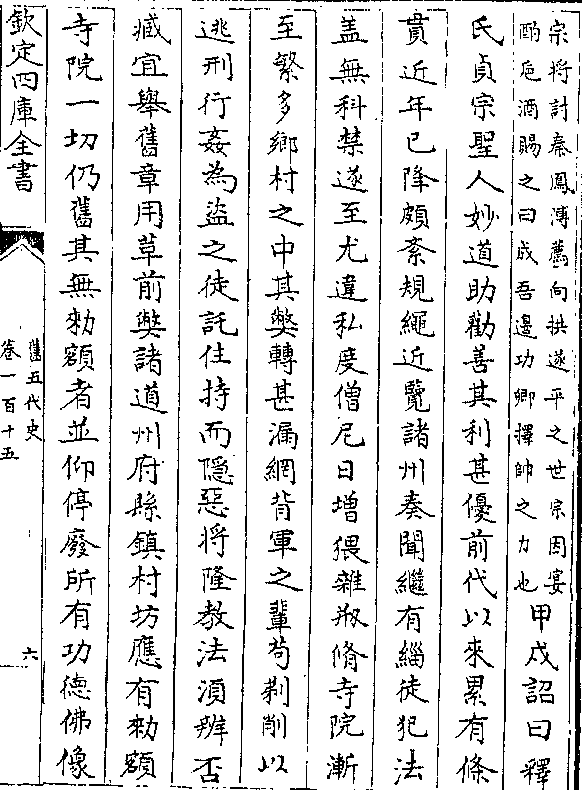 宗將討秦鳳溥薦向拱遂平之世宗因宴
酌巵酒賜之曰成吾邊功卿擇帥之力也
甲戌詔曰釋
氏貞宗聖人妙道助勸善其利甚優前代以來累有條
貫近年已降頗紊規繩近覽諸州奏聞繼有緇徒犯法
盖無科禁遂至尤違私度僧尼日增猥雜剏脩寺院漸
至繁多鄉村之中其弊轉甚漏網背軍之輩苟剃削以
逃刑行姦為盜之徒託住持而隱惡將隆教法湏辨否
臧宜舉舊章用革前弊諸道州府縣鎮村坊應有勅額
寺院一切仍舊其無勅額者並仰停廢所有功德佛像
欽定四庫全書
舊五代史
卷一百十五
六